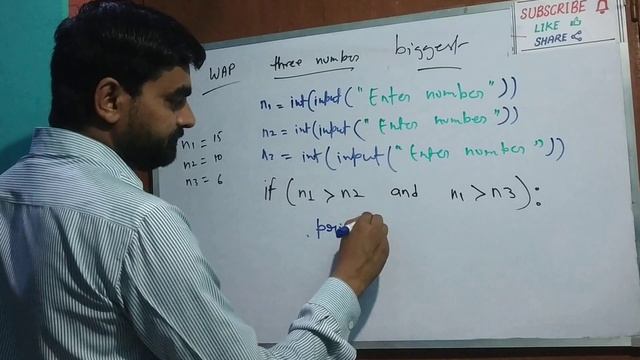 SUBSCRIBE
LIKE
SHARE
WAP three number biggest
n1 = int(input("Enter number"))
n2 = int(input("Enter number"))
n3 = int(input("Enter number"))
n1 = 15
n2 = 10
n3 = 6
if (n1 > n2 and n1 > n3):
pri